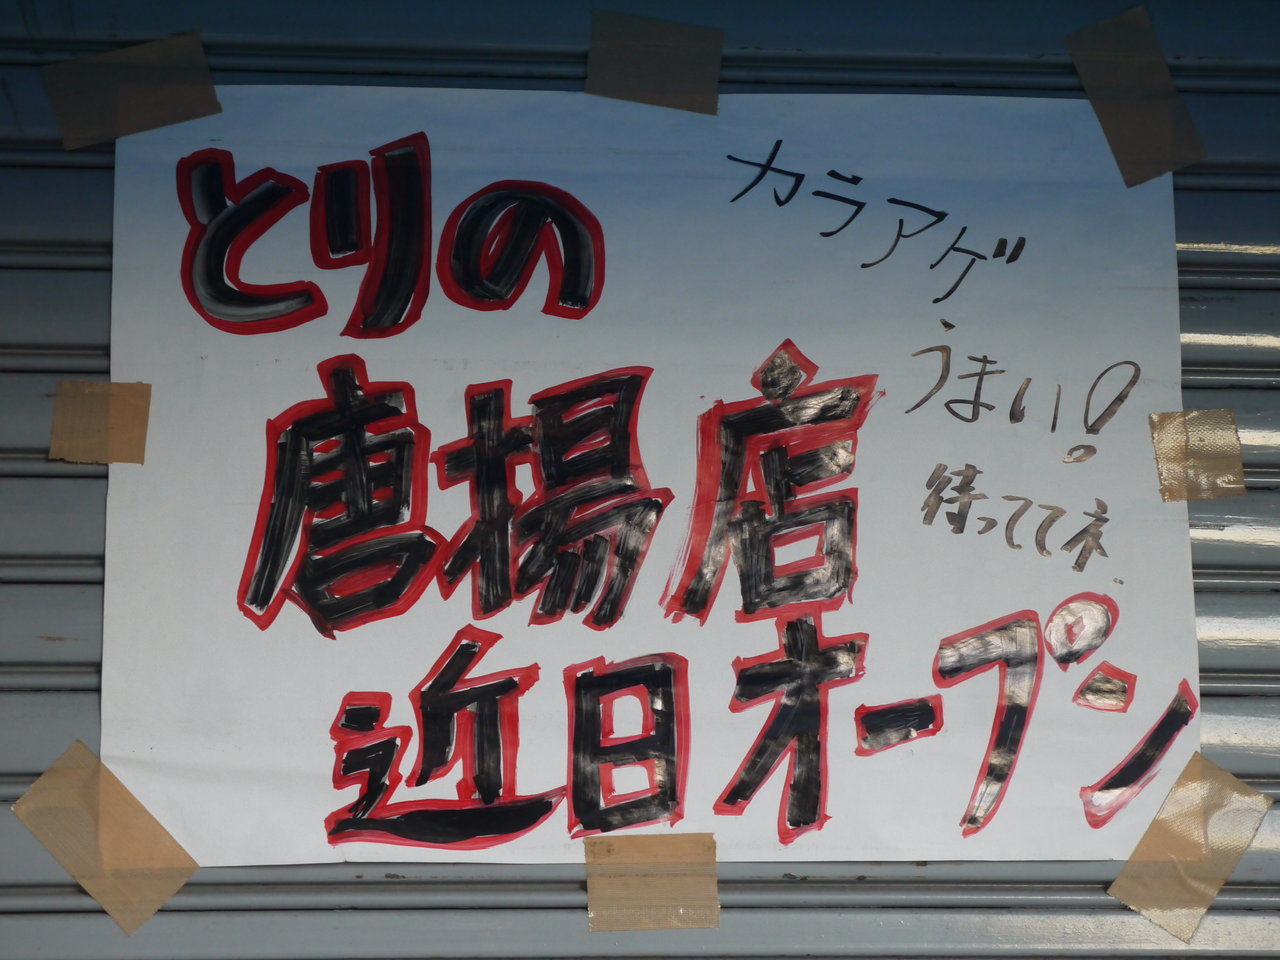 とりの
唐揚店
近日オープン
カラアゲ
うまい!
待っててネ